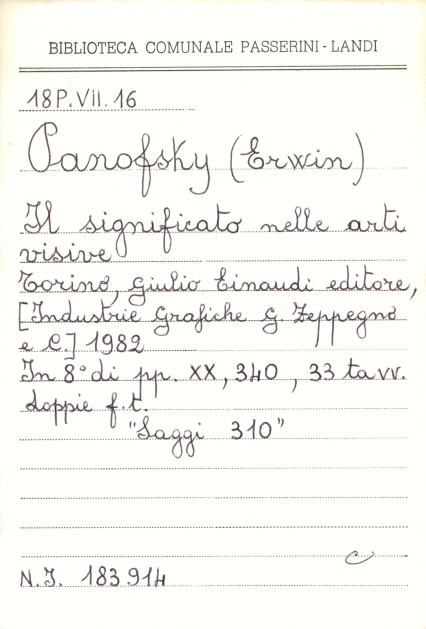 BIBLIOTECA COMUNALE PASSERINI-LANDI
18P.VII.16
Panofsky (Erwin)
Il significato nelle arti
visive
Torino, Giulio Einaudi editore,
[Industrie Grafiche G. Zeppegno
e C.] 1982
In 8° di pp. XX, 340, 33 tavv.
doppie f.t.
"Saggi 310"
c
N.I. 183914